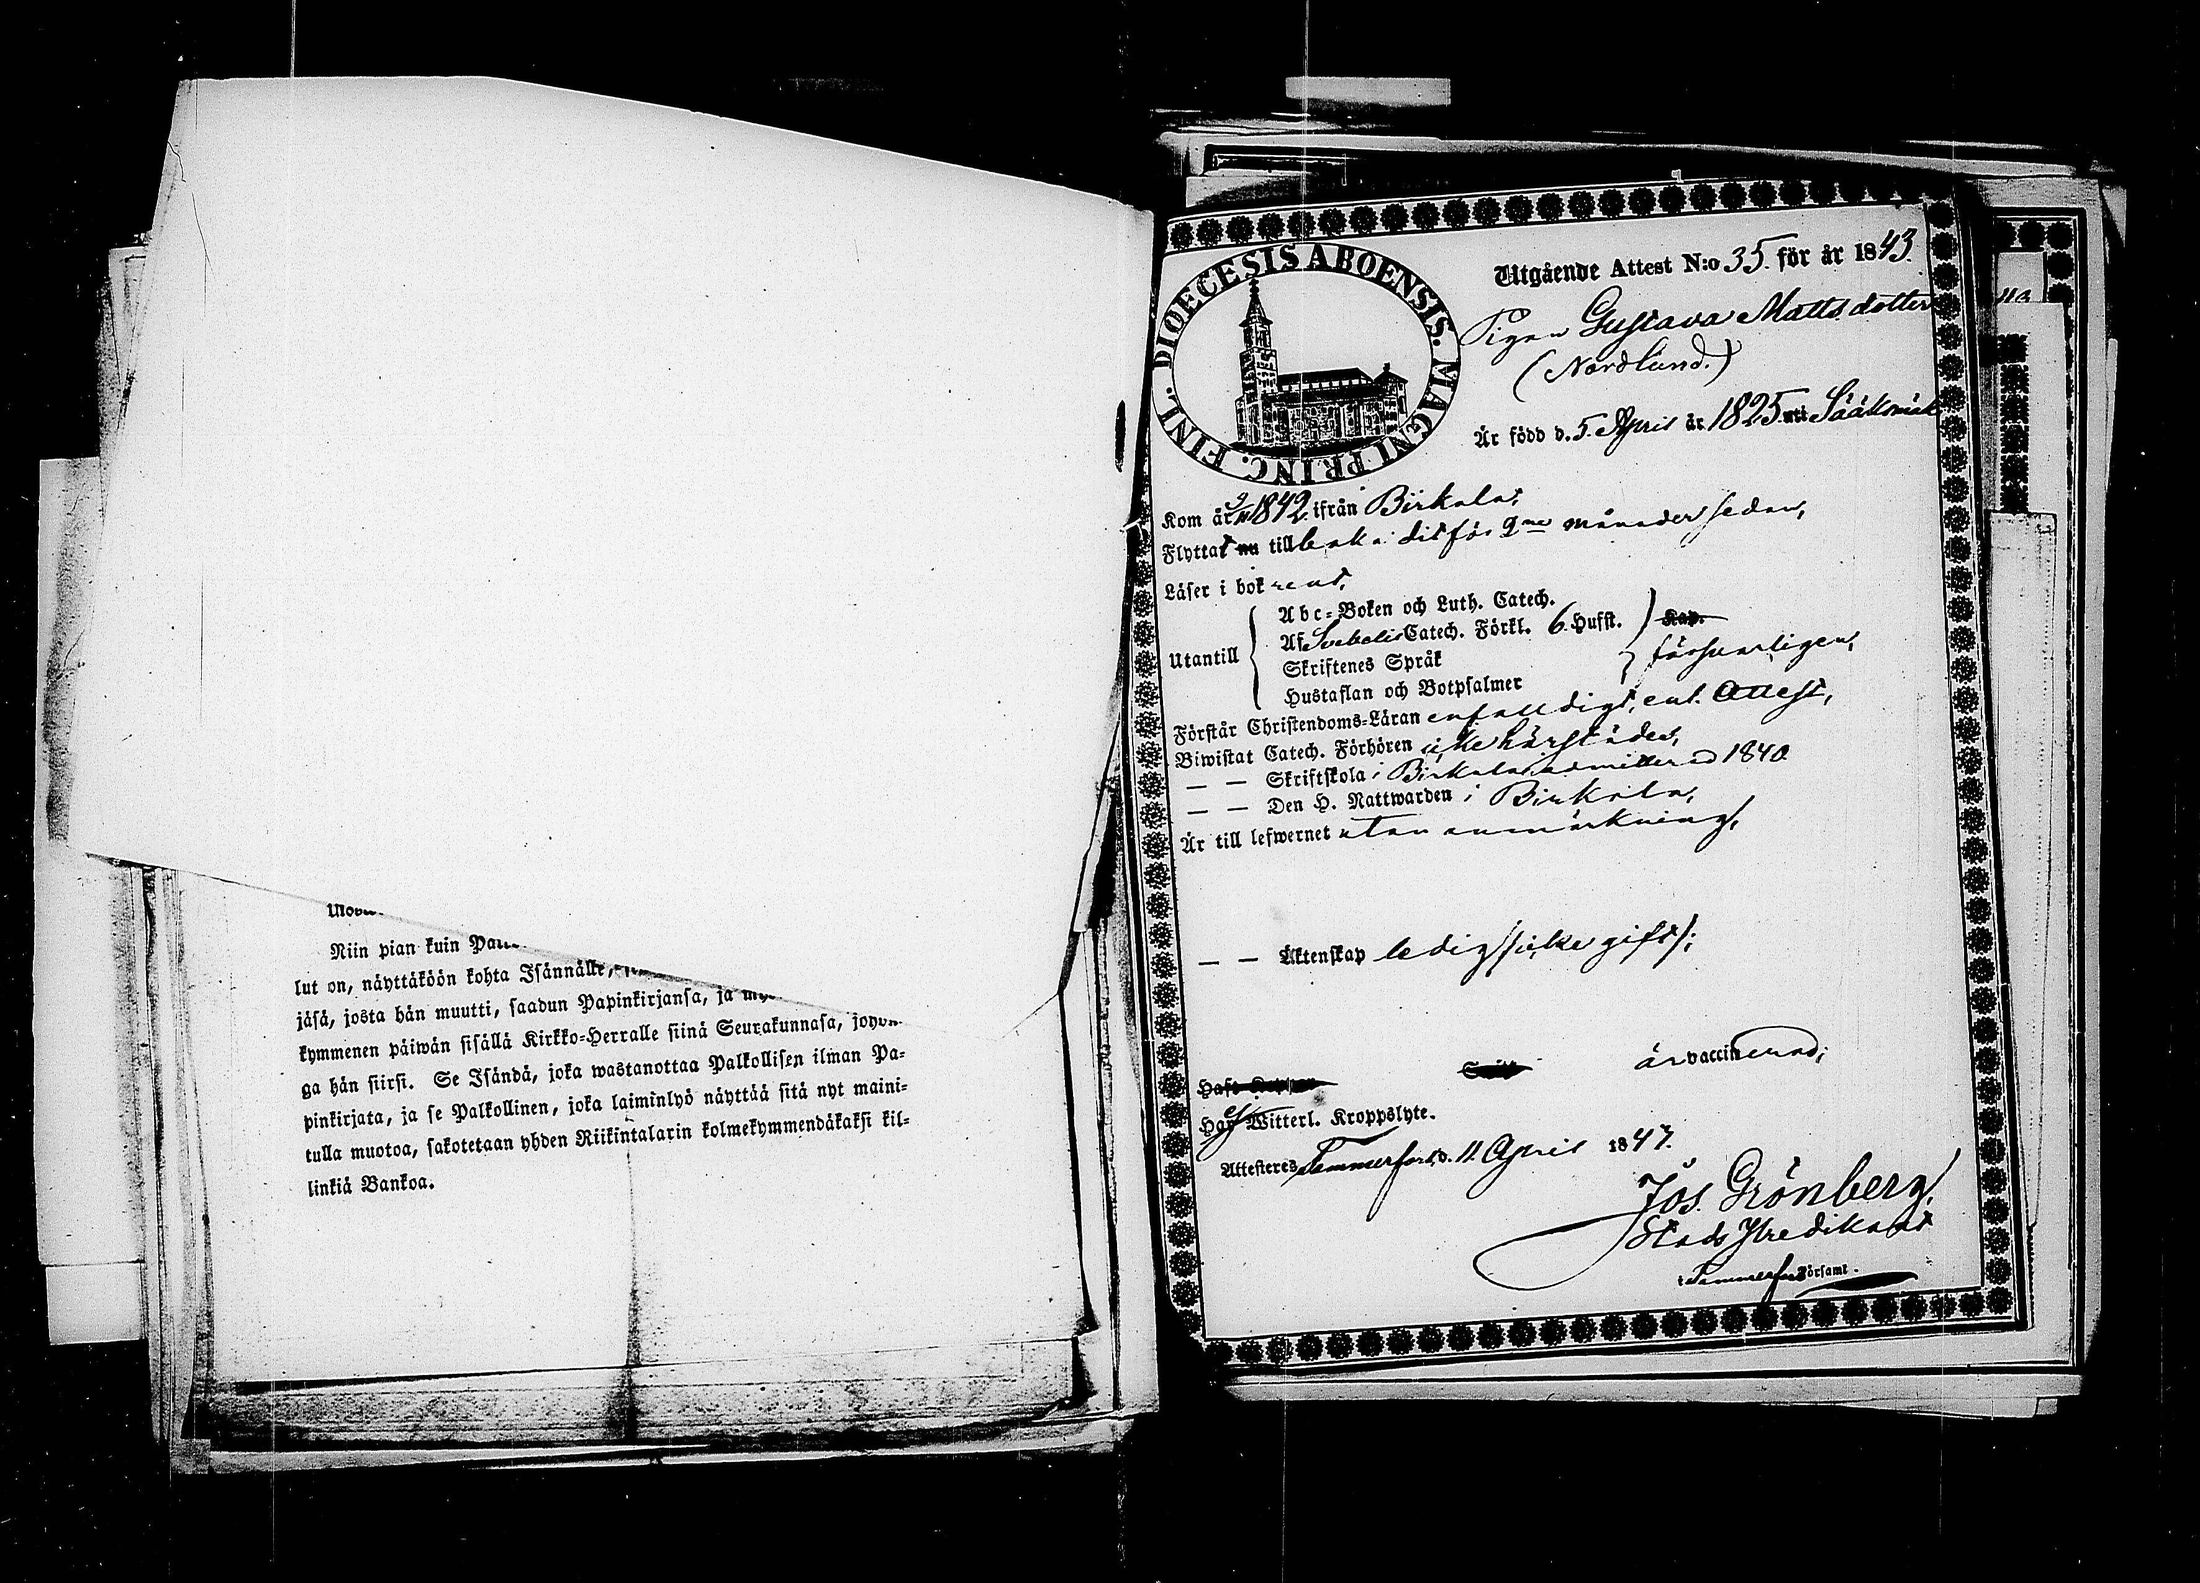 Niin pian kuin
lut on, näyttäköön kohta Isännälle,
jäsä, josta hän muutti, saadun Papinkirjansa, ja
kymmenen päiwän sisällä Kirkko-Herralle siinä Seurakunnasa,
ga hän siirsi. Se Isändä, joka wastanottaa Palkollisen ilman Pa-
pinkirjata, ja se Palkollinen, joka laiminlyö näyttää sitä nyt maini-
tulla muotoa, sakotetaan yhden Riikintalarin kolmekymmendäkaksi kil-
linkiä Bankoa.
DIOECESIS ABOENSIS. MAGNI PRINC. FINL.
Utgående Attest N:o 35. för år 1843.
Pigan Gustava Mattsdotter
(Nordlund.)
Är född d. 5. April år 1825 uti Sääksmäk
Kom år 1842 ifrån Birkala;
Flyttat nu tillbaka dit för 9 månader sedan,
Läser i bok rent,
Utantill
Abc-Boken och Luth. Catech.
Af Svebelii Catech. Förkl. 6. Hufst. Kap.
Skriftenes Språk försvarligen,
Hustaflan och Botpsalmer
Förstår Christendoms-Läran enfalldigt, enl. Attest,
Biwistat Catech. Förhören icke härstädes,
— — Skriftskola i Birkala admitterad 1840
— — Den H. Nattwarden i Birkala,
Är till lefwernet utan anmärkning,
— — Äktenskap ledig /: icke gift :/;
är vaccinerad;
Har ej Witterl. Kroppslyte.
Attesteres Tammerfors, d. 11. April 1843.
Jos. Grönberg,
Stads Predikant
i Tammerfors Församl.